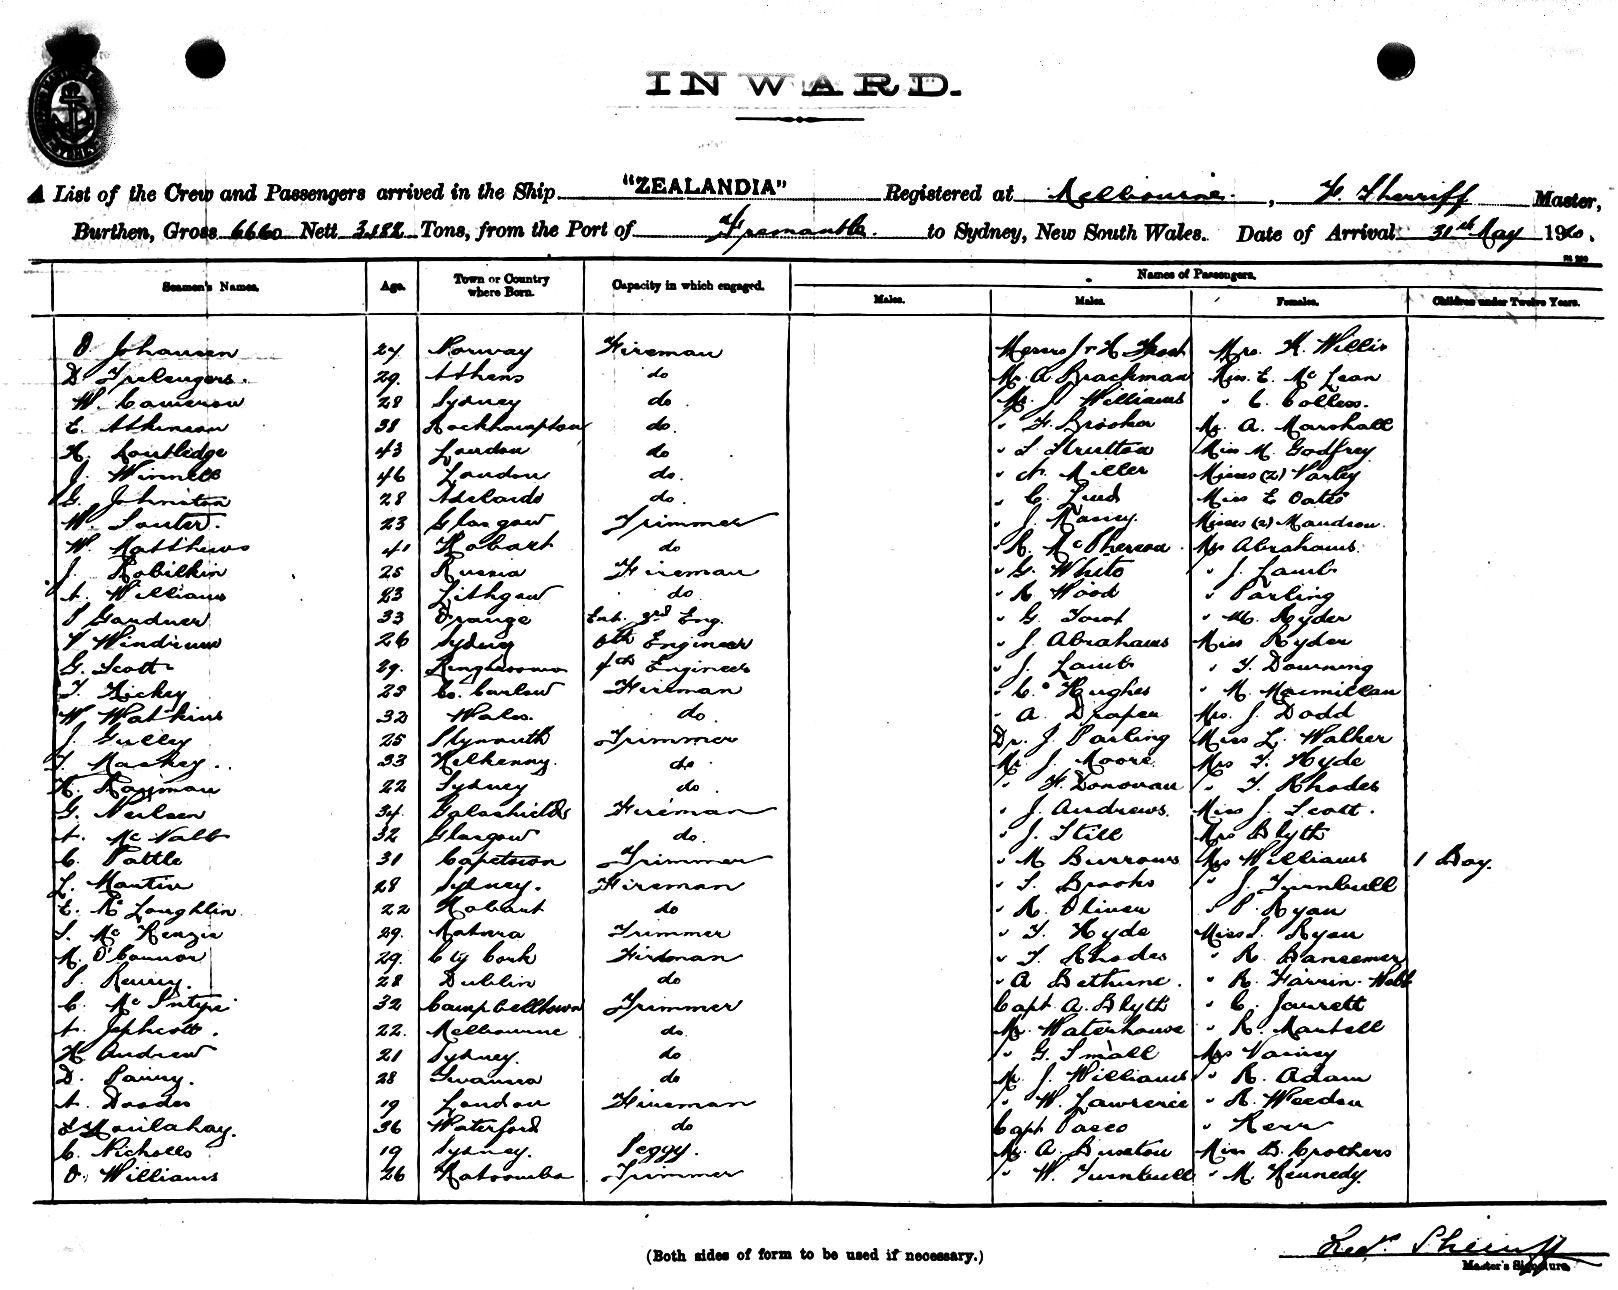 INWARD.
A List of the Crew and Passengers arrived in the Ship "ZEALANDIA" Registered at Melbourne, Sherriff Master,
Burthen, Gross 6660 Nett Tons, from the Port of Fremantle. to Sydney, New South Wales. Date of Arrival 31st May 19
Seamen's Names. Age. Town or Country where Born. Capacity in which engaged. Names of Passengers.
Males. Males. Females. Children under Twelve Years.
O Johansen 24 Norway Fireman Messrs J & H Mrs. H. Willis
D. 29. Athens do Mr. A Brackman Miss. E. McLean
W. Cameron 28 Sydney do. Mr. J. Williams " C. Colless.
E. Atkinson 38 Rockhampton do. " F. Brooker Mr. A. Marshall
H. Routledge 43 London do " S Strutton Miss M. Godfrey
J. Winnett 46 London do. " Miller Misses (2) Varley
G. Johnston 28 Adelaide do. " C. Lind Miss E Oates
W. Souter. 23 Glasgow Trimmer " J. Misses (2) Maudson.
W. Matthews 41 Hobart do " R. McPherson. Mrs Abrahams.
J. Robilkin 25 Russia Fireman " G. White " J. Lamb
A. Williams 23 Lithgow do. " R Wood " Parling
P Gardner 33 Orange 3rd Eng. " G. " M. Ryder
V Windrum 26 Sydney 6th Engineer " J. Abrahams Miss Ryder
G. Scott 29. 4th Engineer " J. Lamb " T. Downing
T. Hickey 25 Co. Carlow Fireman " C. Hughes " M. Macmillan
W Watkins 32 Wales. do. " A. Draper Mrs. J. Dodd
J. Gulley 25 Plymouth Trimmer Dr. J. Parling Miss L. Walker
T. Mackey 33 Kilkenny. do. Mr. J. Moore Mrs T. Hyde
H. Rayman 22 Sydney do. " F. Donovan " T. Rhodes
G. Neilsen 34. Galashields Fireman " J. Andrews. Miss J. Scott.
A. McNab 32 Glasgow do. " J. Still Mrs Blyth
C. Pattle 31 Capetown Trimmer " M Burrows Mrs Williams 1 Boy.
L. Martin 28 Sydney. Fireman " S. Brooks " J. Turnbull
E. McLoughlin. 22 Hobart do " R. Oliver " P. Ryan
S. McKenzie 29. Trimmer " T. Hyde Miss S. Ryan
M. O'Connor 29. City Cork Fireman " T. Rhodes " R. Bansemer
28 Dublin do " A Bethune. " R. Farrin-Webb
C. McIntyre 32 Campbelltown Trimmer Capt. A. Blyth " C. Jarrett
A. Jephcott. 22. Melbourne do. Mr. Waterhouse " R. Martell
H Andrew 21 Sydney. do " G. Small Mrs Vainey
D. 28 Swansea do Mr. J. Williams " R. Adam
A. Doodes 19 London Fireman " W. Lawrence " R. Weedon
Moulahay. 36 Waterford do Capt Pasco " Kerr
C. Nicholls 19 Sydney. Peggy. Mr. A. Buxton Miss B. Crothers
O. Williams 26 Katoomba Trimmer " W. Turnbull " M. Kennedy.
(Both sides of form to be used if necessary.)
Master's Signature.